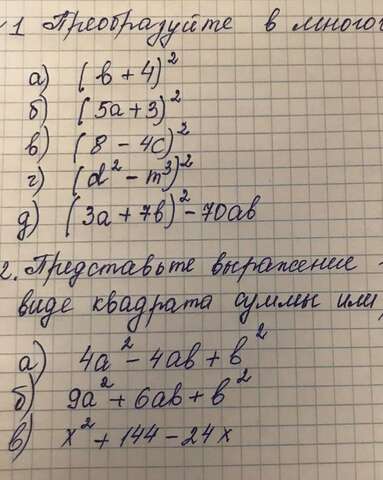 1 Преобразуйте в многоч
а) (b + 4)²
б) (5a + 3)²
в) (8 - 4c)²
г) (d² - m³)²
д) (3a + 7b)² - 70ab
2. Представьте выражение
виде квадрата суммы или
а) 4a² - 4ab + b²
б) 9a² + 6ab + b²
в) x² + 144 - 24x